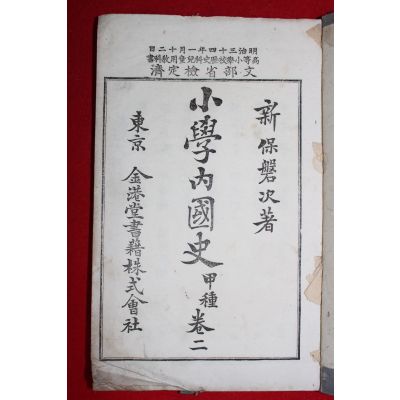 明治三十四年一月十二日
高等小學校歷史科兒童用教科書
文部省檢定濟
新保磐次著
小學內國史 甲種 卷二
東京 金港堂書籍株式會社